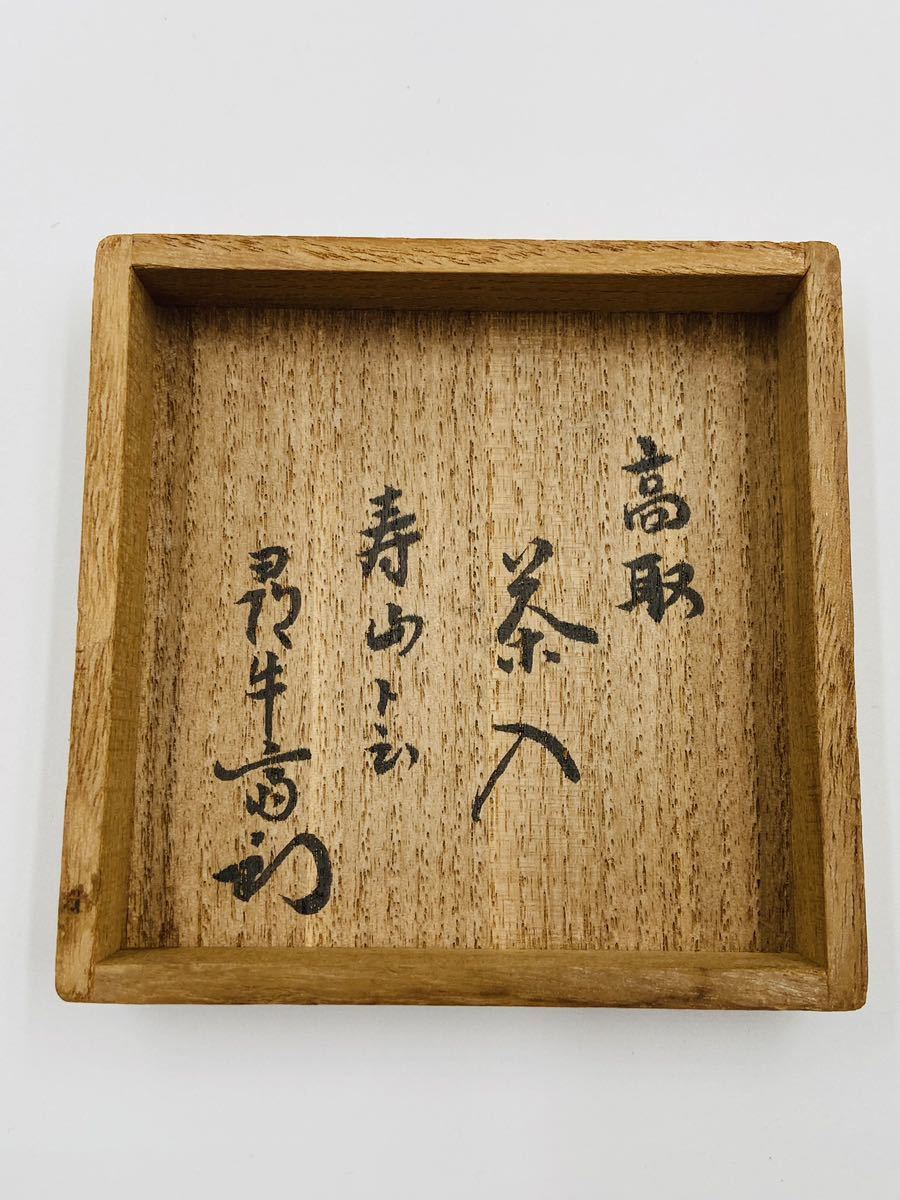 高取
茶入
寿山ト云
尋牛斎